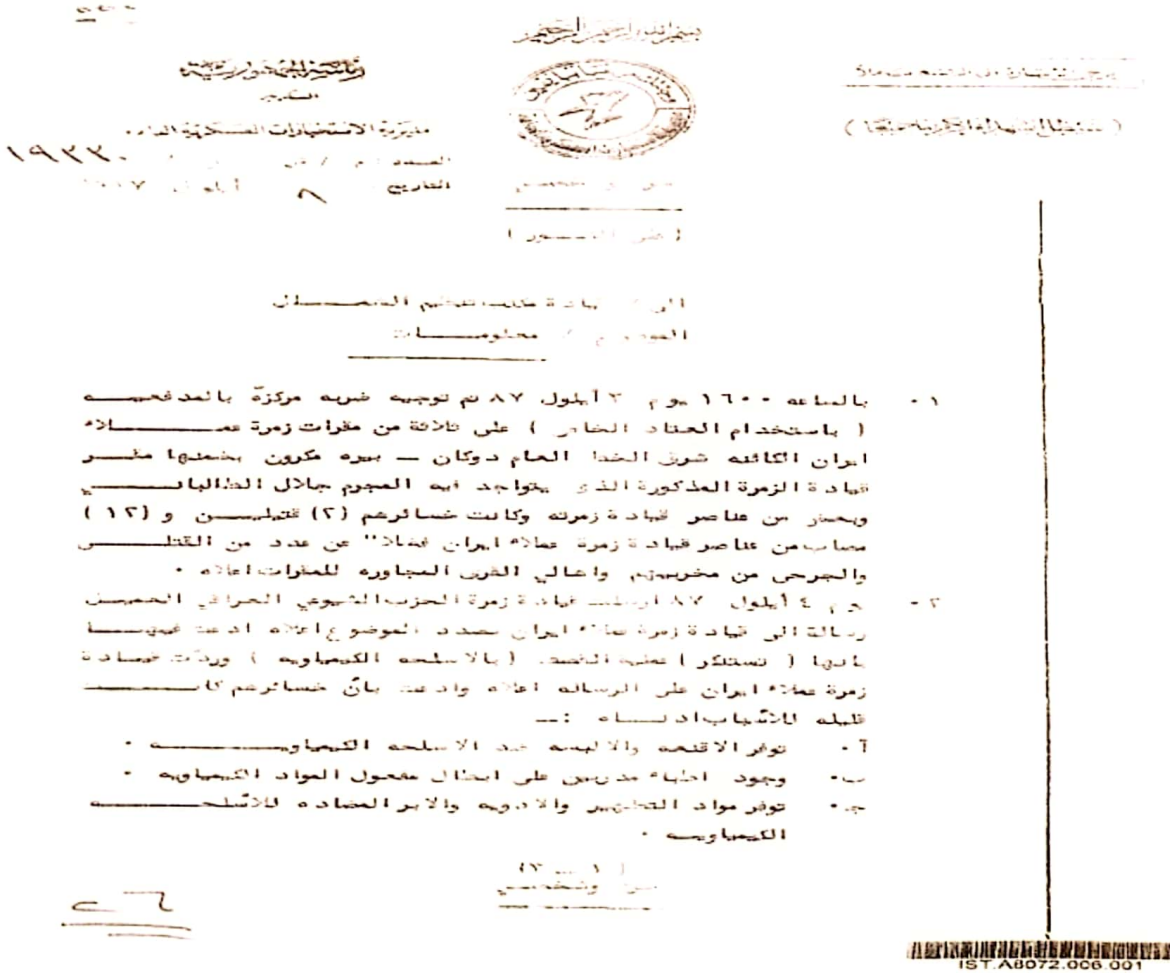 بسم الله الرحمن الرحيم
رئاسة الجمهورية
السكرتير
مديرية الاستخبارات العسكرية العامه
العدد م /
١٩٣٣٠
التاريخ ٨ أيلول
(على الفور)
الى / قيادة مكتب تنظيم الشمال
الموضوع / معلومات
٠١ بالساعه ١٦٠٠ يوم ٣ أيلول ٨٧ تم توجيه ضربه مركزة بالمدفعيه
( باستخدام العتاد الخاص ) على ثلاثة من مقرات زمرة عملاء
ايران الكائنه شرق الخط العام دوكان ــ بيره مكرون بضمنها مقر
قيادة الزمرة المذكورة الذي يتواجد فيه المجرم جلال الطالباني
وبعض من عناصر قيادة زمرته وكانت خسائرهم (٢) قتيلين و (١٢)
مصاب من عناصر قيادة زمرة عملاء ايران فضلا" عن عدد من القتلى
والجرحى من مخربيهم واهالي القرى المجاوره للمقرات اعلاه ٠
٠٢ يوم ٤ أيلول ٨٧ ارسلت قيادة زمرة الحزب الشيوعي العراقي العميل
رسالة الى قيادة زمرة عملاء ايران بصدد الموضوع اعلاه ادعت فيها
بأنها ( تستنكر ) عملية القصف (بالاسلحه الكيمياويه ) وردت قيادة
زمرة عملاء ايران على الرساله اعلاه وادعت بان خسائرهم كانت
قليله للأسباب ادناه :ــ
آ٠ توفر الاقنعه والالبسه ضد الاسلحه الكيمياويه ٠
ب٠ وجود اطباء مدربين على ابطال مفعول المواد الكيمياويه ٠
ج٠ توفر مواد التطهير والادويه والابر المضاده للأسلحه
الكيمياويه ٠
(١ ــ ٣)
سري وشخصي
IST.A8072.006.001